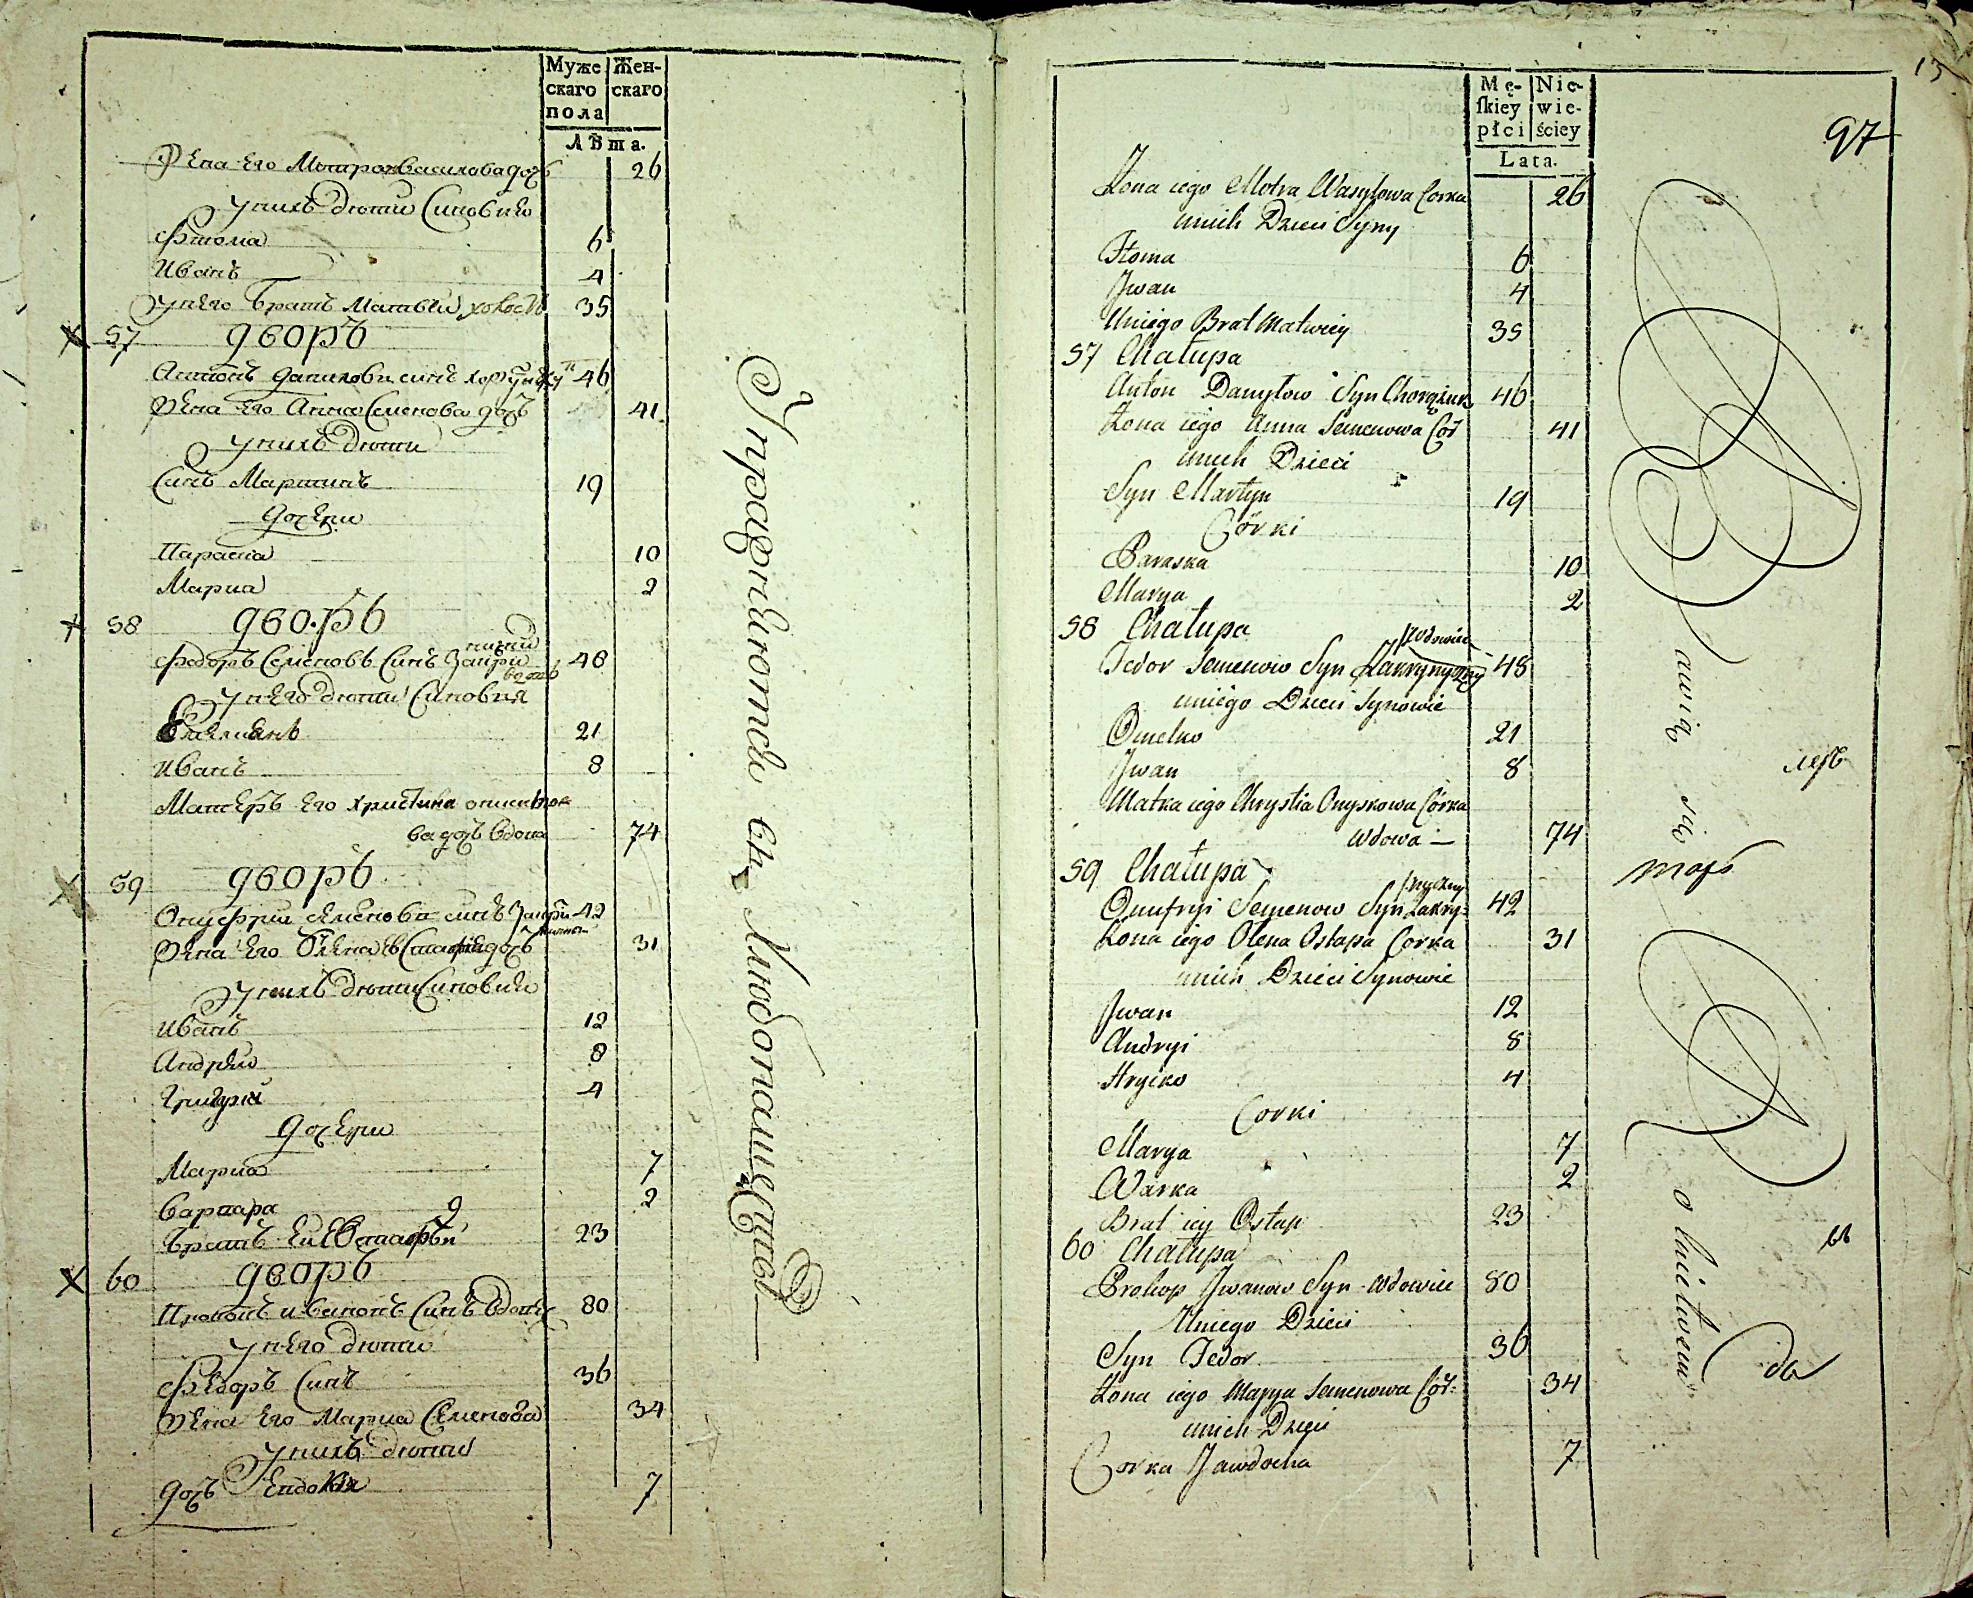 Муже-
скаго
пола
Жен-
скаго
Лѣта.
Жена Его Мотра василова дочь 26
Унихъ дѣти Синовѣе
Фтома 6
Иванъ 4
Унего Братъ Матвѣй холостъ 35
57 дворъ
Антонъ даниловъ синъ 46
Жена Его Анна Семенова дочь 41
Унихъ дѣти
Синъ Мартинъ 19
дочери
Параска 10
Мариа 2
58 дворъ
Федоръ Семеновъ Синъ 48
Унего дѣти Синовия
Емелиянъ 21
Иванъ 8
Матеръ Его христина
ва дочъ вдова 74
59 дворъ
Онуфрий Семеновъ синъ 42
Жена Его Олена дочъ 31
Унихъ дѣти Синовѣе
Иванъ 12
Андрей 8
Григорий 4
дочери
Мариа 7
варвара 2
братъ Ей Остафѣй 23
60 дворъ
Прокопъ ивановъ Синъ вдовецъ 80
унего дѣти
Федоръ Синъ 36
Жена Его Мариа Семенова 34
Унихъ дѣти
дочъ Евдокия 7
Управляютсь
Mę-
skiey
płci
Nie-
wie-
ściey
Lata.
13
97
Żona iego Motra Wasylowa Corka 26
unich Dzieci Syny
Ftoma 6
Jwan 4
Uniego Brat Matwiey 35
57 Chałupa
Anton Danyłow Syn Chorążuk 46
Żona iego Anna Semenowa Cor 41
unich Dzieci
Syn Martyn 19
Córki
Paraska 10
Marya 2
58 Chałupa
Fedor Semenow Syn 48
uniego Dzieci Synowie
Omelko 21
Jwan 8
Matka iego Chrystia Onyskowa Córka
Wdowa — 74
59 Chałupa
Onufryi Semenow Syn Zakry= 42
Żona iego Olena Ostapa Corka 31
unich Dzieci Synowie
Jwan 12
Andryi 8
Hryćko 4
Corki
Marya 7
Warka 2
Brat iey Ostap 23
60 Chałupa
Prokop Jwanow Syn Wdowiec 80
Uniego Dzieci
Syn Fedor 36
Żona iego Marya Semenowa Cór: 34
unich Dzieci
Corka Jawdocha 7
awią się
o
da